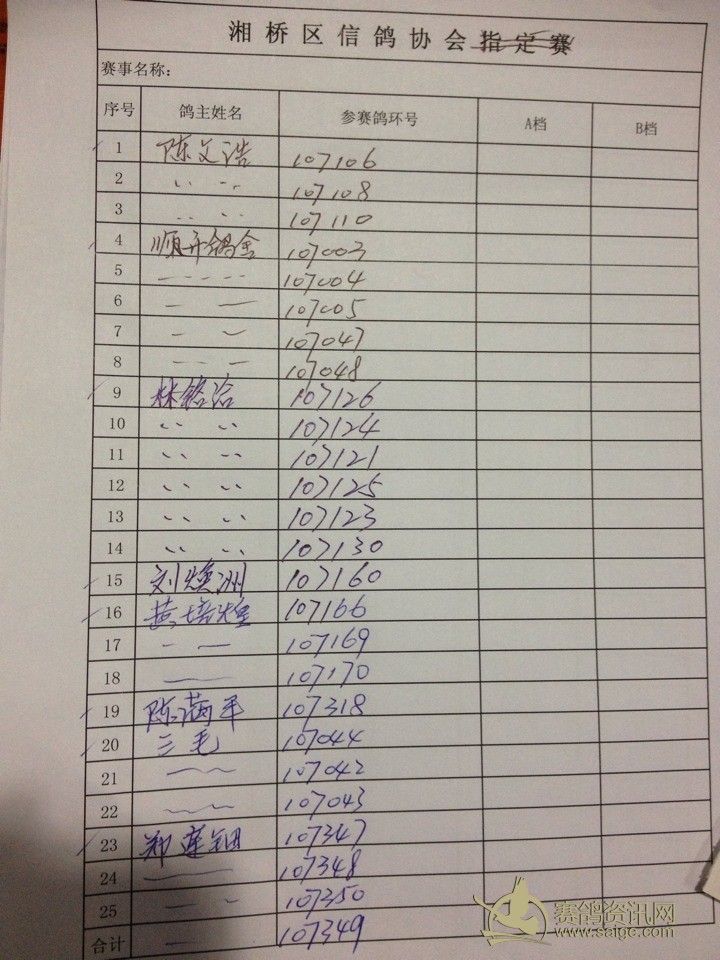 湘桥区信鸽协会指定赛
赛事名称：
序号 鸽主姓名 参赛鸽环号 A档 B档
1 陈文浩 107106
2 〃 〃 107108
3 〃 〃 107110
4 顺开鸽舍 107003
5 107004
6 107005
7 107047
8 107048
9 林铭洽 107126
10 〃 〃 107124
11 〃 〃 107121
12 〃 〃 107125
13 〃 〃 107123
14 〃 〃 107130
15 刘焕洲 107160
16 黄培煌 107166
17 107169
18 107170
19 陈满平 107318
20 三毛 107044
21 107042
22 107043
23 郑莲钿 107347
24 107348
25 107350
合计 107349
赛鸽资讯网
www.saige.com